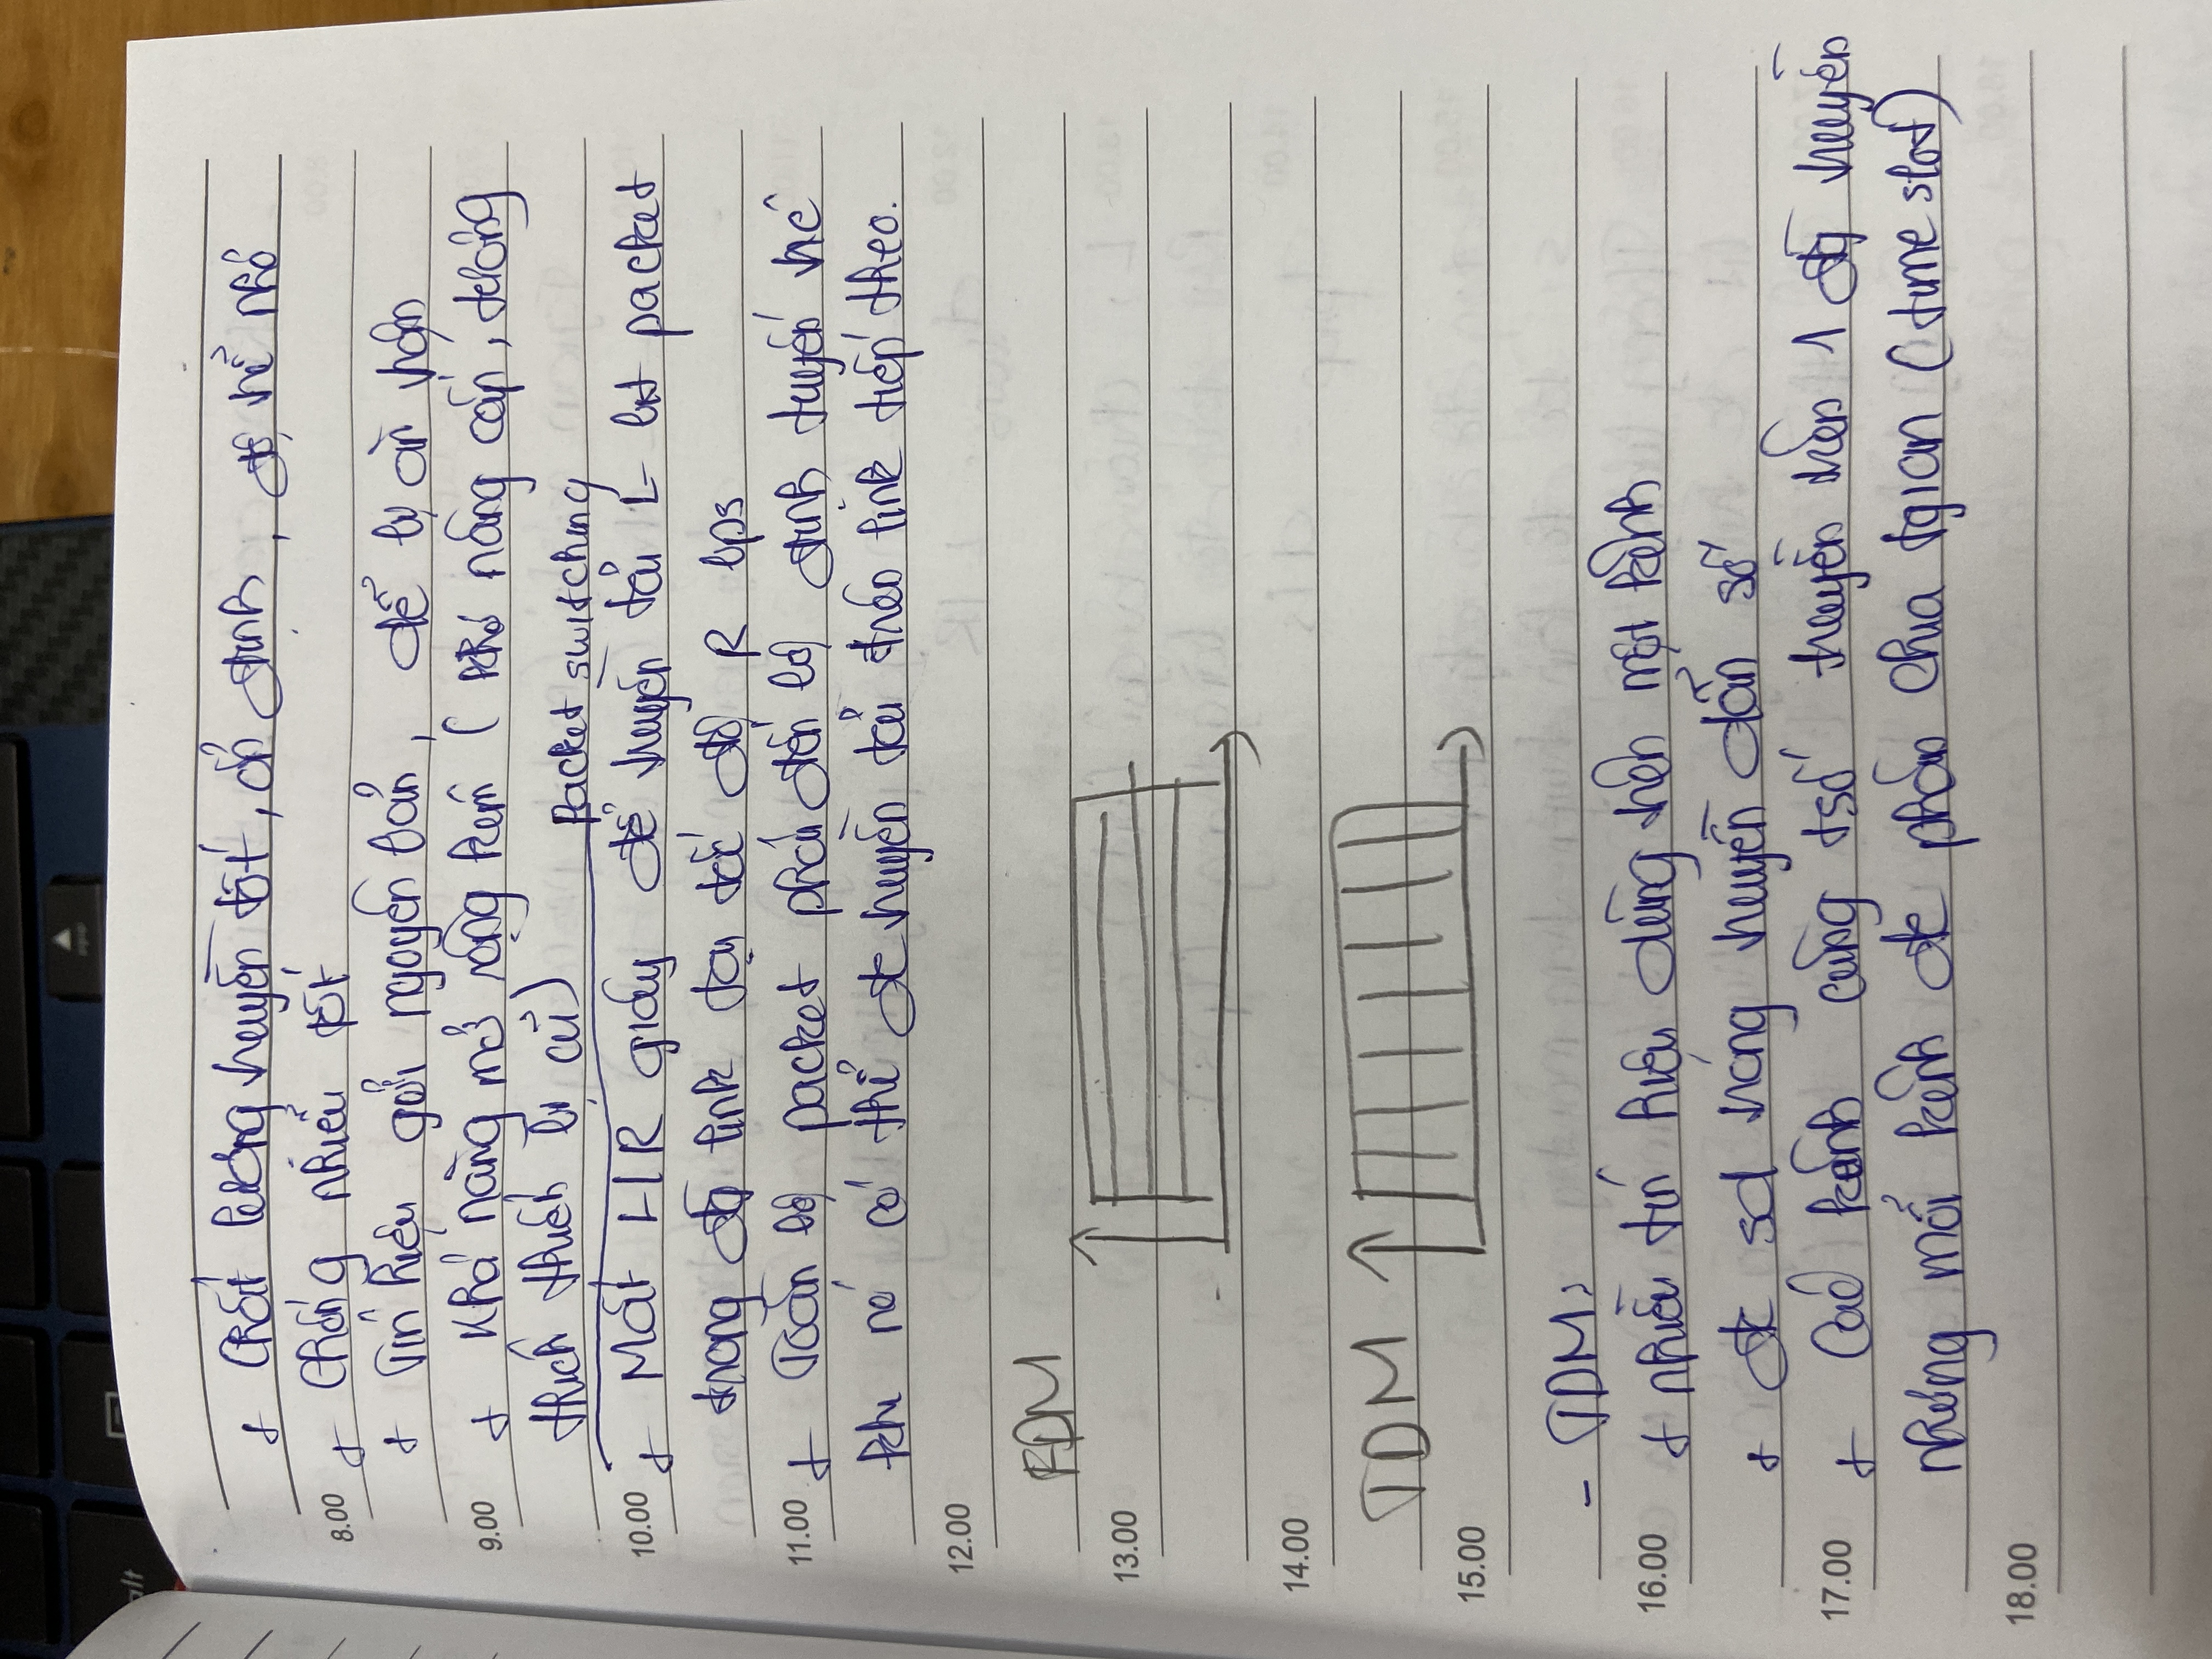 alt
+ Chất lượng truyền tốt, ổn định, độ trễ nhỏ
8.00 + Chống nhiễu tốt
+ Tín hiệu gửi nguyên bản, dễ bị ăn trộm
9.00 + Khả năng mở rộng kém (khó nâng cấp, tương
thích thiết bị cũ)
Packet switching
10.00 + Mất L/R giây để truyền tải L-bit packet
trong đg link tại tốc độ R bps
11.00 + Toàn bộ packet phải đến bộ định tuyến trc
khi nó có thể đc truyền tải trên link tiếp theo.
12.00
FDM
13.00
14.00
TDM
15.00
- TDM:
16.00 + nhiều tín hiệu dùng trên một kênh
+ đc sd trong truyền dẫn số
17.00 + Các kênh cùng tsố truyền trên 1 đg truyền
nhưng mỗi kênh đc phân chia tgian (time slot)
18.00